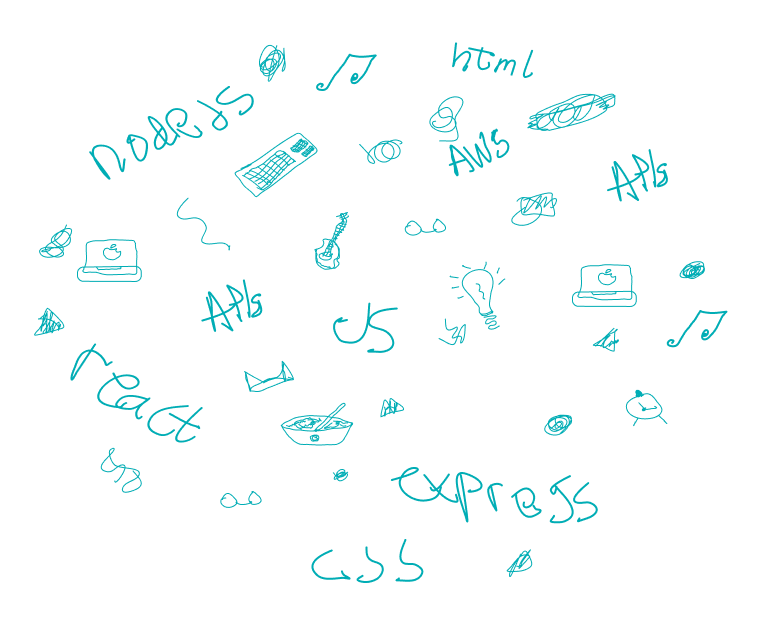 html
nodeJS
AWS
APIs
APIs
JS
react
expreJS
css